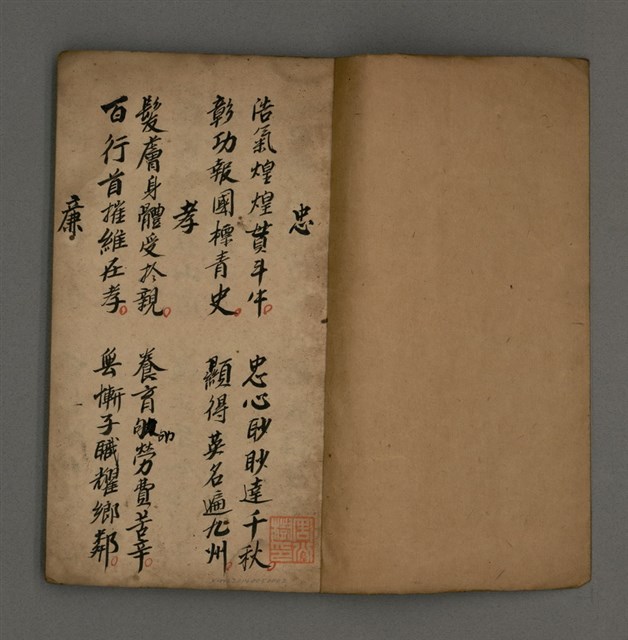 忠
浩氣煌煌貫斗牛
忠心耿耿達千秋
彰功報國標青史
顯得英名遍九州
孝
髮膚身體受於親
養育劬勞費苦辛
百行首摧維在孝
無慚子職耀鄉鄰
廉